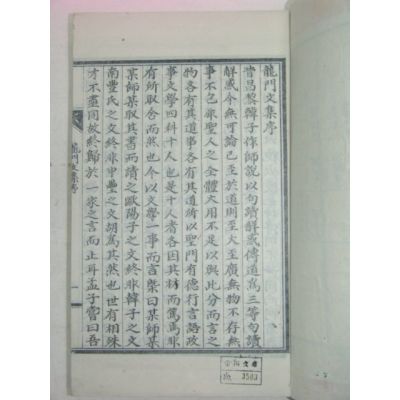 龍門文集序
昔昌黎韓子作師說以句讀解惑傳道爲三等句讀
解惑今無可論已至於道則至大至廣無物不存無
事不包原聖人之全體大用不足以與此分而言之
物各有其道事各有其道術以聖門有德行言語政
事文學四科十人也是十人者各因其材而篤焉非
有所取舍而然也今以文學一事而言槩曰某師某
某師某取其書而讀之歐陽子之文終非韓子之文
南豐氏之文終非甲豊之文胡爲其然也世有相殊
才不盡同故終歸於一家之言而止耳孟子嘗曰吾
龍門文集序
一
文庫
3583